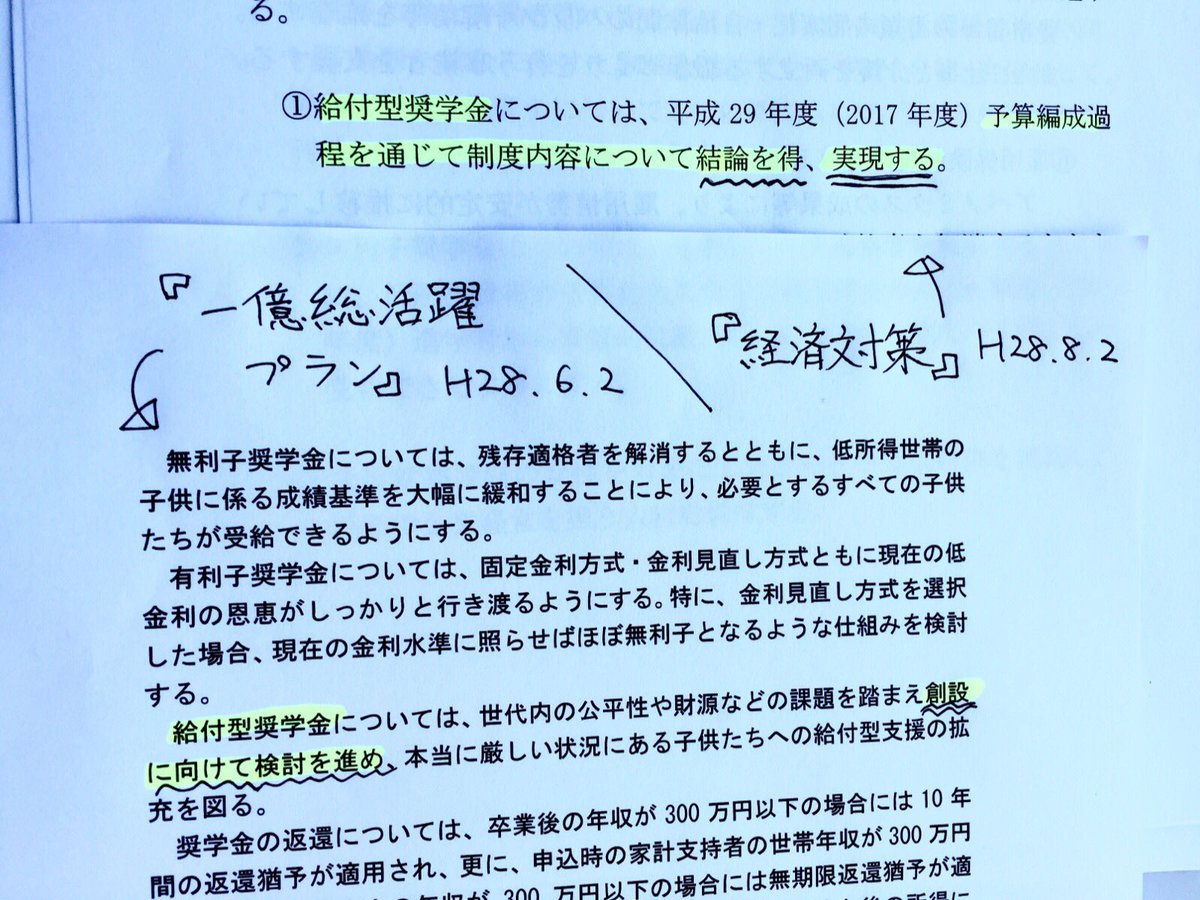 る。
①給付型奨学金については、平成 29 年度（2017 年度）予算編成過
程を通じて制度内容について結論を得、実現する。
『一億総活躍
プラン』 H28.6.2
『経済対策』 H28.8.2
無利子奨学金については、残存適格者を解消するとともに、低所得世帯の
子供に係る成績基準を大幅に緩和することにより、必要とするすべての子供
たちが受給できるようにする。
有利子奨学金については、固定金利方式・金利見直し方式ともに現在の低
金利の恩恵がしっかりと行き渡るようにする。特に、金利見直し方式を選択
した場合、現在の金利水準に照らせばほぼ無利子となるような仕組みを検討
する。
給付型奨学金については、世代内の公平性や財源などの課題を踏まえ創設
に向けて検討を進め、本当に厳しい状況にある子供たちへの給付型支援の拡
充を図る。
奨学金の返還については、卒業後の年収が 300 万円以下の場合には 10 年
間の返還猶予が適用され、更に、申込時の家計支持者の世帯年収が 300 万円
の年収が 300 万円以下の場合には無期限返還猶予が適